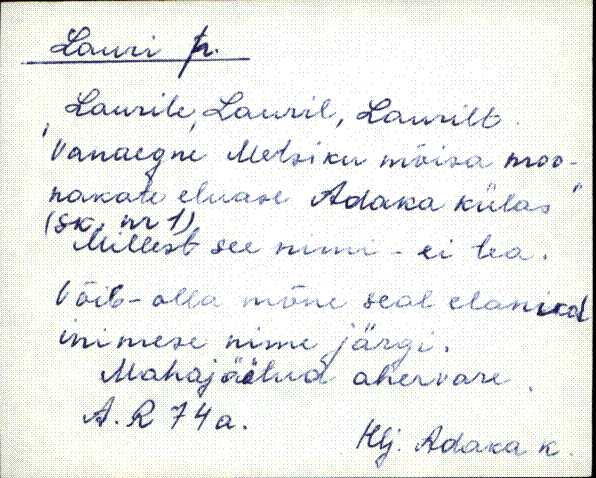 Lauri p.
Laurile, Lauril, Laurilt.
"Vanaegne Metsiku mõisa moo-
nakate eluase Adaka külas"
(sk. nr 1)
Millest see nimi - ei tea.
Võib-olla mõne seal elanud
inimese nime järgi.
Mahajäetud ahervare.
A. R 74a.
Hlj. Adaka k.